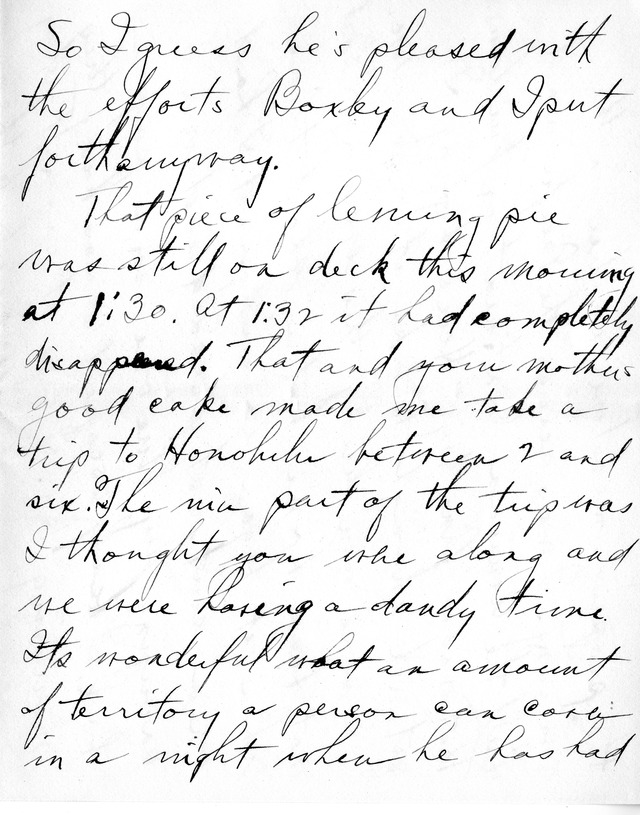 So I guess he's pleased with
the efforts Boxby and I put
forth anyway.
That piece of leming pie
was still on deck this morning
at 1:30. At 1:32 it had completely
disappeared. That and your mothers
good cake made me take a
trip to Honolulu between 2 and
six. The nice part of the trip was
I thought you were along and
we were having a dandy time.
Its wonderful what an amount
of territory a person can cover
in a night when he has had